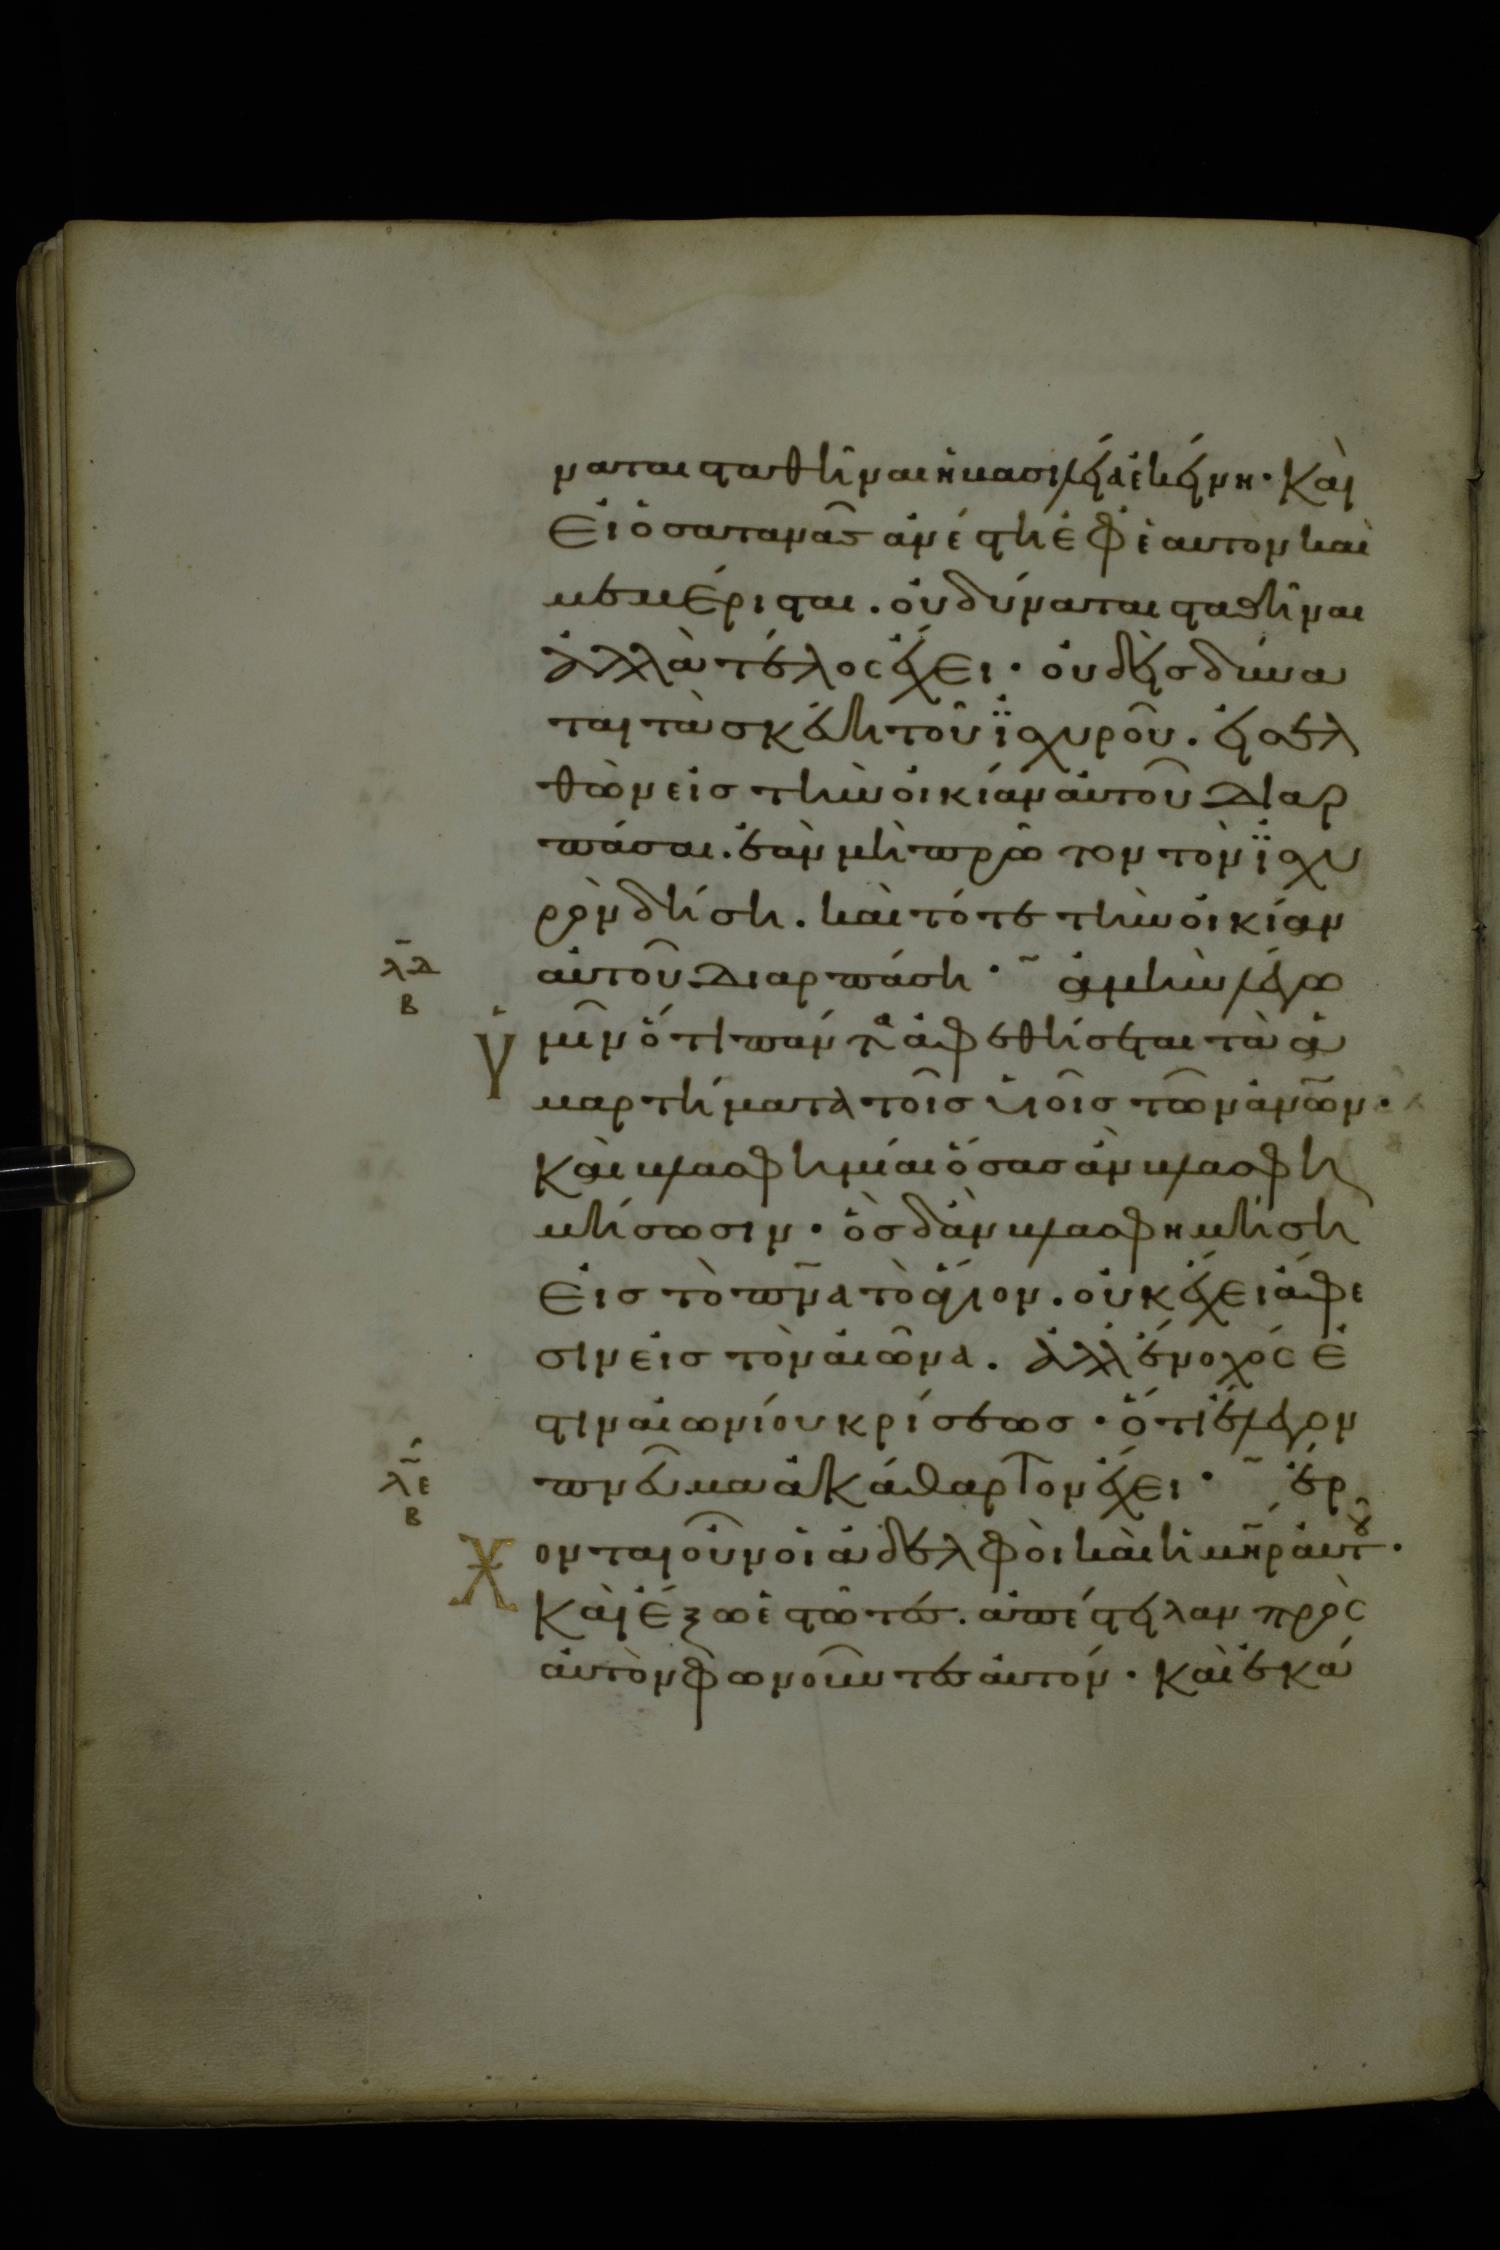 ναται σταθῆναι ἡ βασιλεία ἐκείνη· Καὶ
Εἰ ὁ σατανᾶς ἀνέστη ἐφ' ἑαυτὸν καὶ
μεμέρισται. οὐ δύναται σταθῆναι
ἀλλὰ τέλος ἔχει· οὐδεὶς δύνα
ται τὰ σκεύη τοῦ ἰσχυροῦ. εἰσελ
θὼν εἰς τὴν οἰκίαν αὐτοῦ διαρ
πάσαι. ἐὰν μὴ πρῶτον τὸν ἰσχυ
ρὸν δήση. καὶ τότε τὴν οἰκίαν
λδ αὐτοῦ διαρπάση· ἀμὴν λέγω
β
ὑμῖν ὅτι πάντα ἀφεθήσεται τὰ ἁ
μαρτήματα τοῖς υἱοῖς τῶν ἀνῶν·
Καὶ βλασφημίαι ὅσας ἂν βλασφη
μήσωσιν· ὃς δ' ἂν βλασφημήση
Εἰς τὸ πνα τὸ ἅγιον. οὐκ ἔχει ἄφε
σιν εἰς τὸν αἰῶνα. ἀλλ' ἔνοχός ἐ
στιν αἰωνίου κρίσεως· ὅτι ἔλεγον
λε πνεῦμα ἀκάθαρτον ἔχει· ἔρ
β
Χονται οὖν οἱ ἀδελφοὶ καὶ ἡ μηρ αὐτοῦ·
Καὶ ἔξω ἑστῶτες. ἀπέστειλαν πρὸς
αὐτὸν φωνοῦντες αὐτόν· Καὶ ἐκά